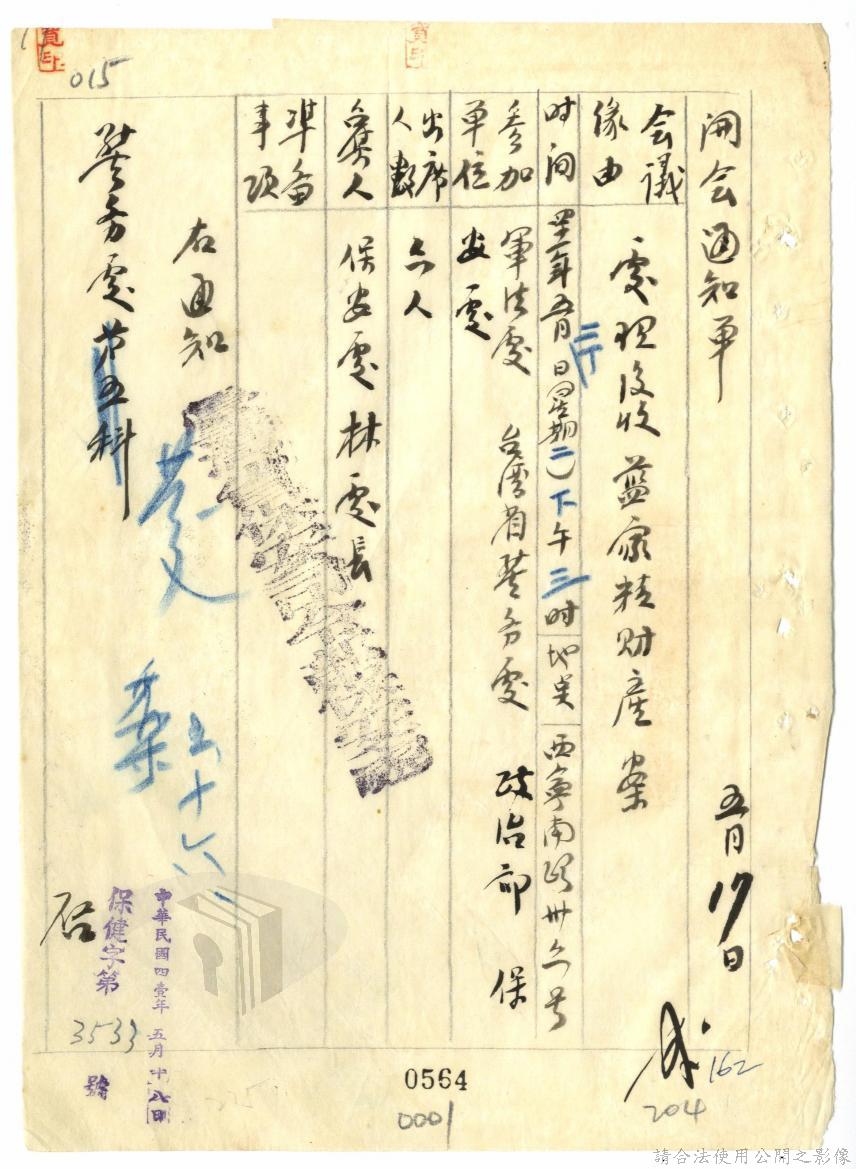 開会通知单
五月17日
会議緣由
處理後收藍家精財產案
时间
四十一年五月二十日(星期二)下午三时
地点
西寧南路卅六号
参加单位
軍法處 台湾省警务處 政治部 保安處
出席人数
六人
召集人
保安處林處長
準备事項
右通知
警务處第五科
启
中華民國四壹年五月十八日
保健字第
3533
號
015
0564
0001
162
204
請合法使用公開之影像